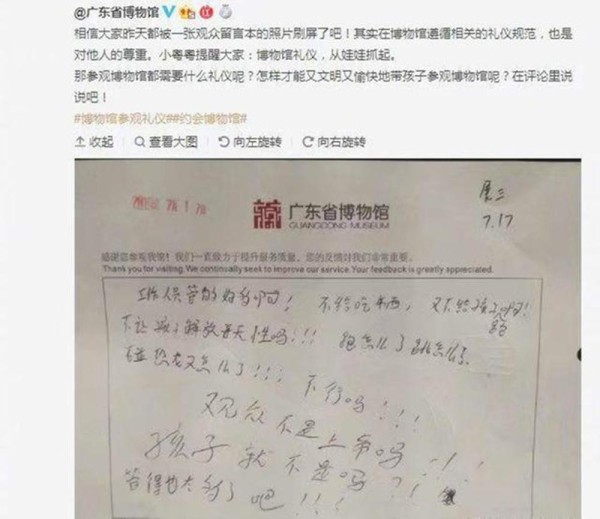 @广东省博物馆
相信大家昨天都被一张观众留言本的照片刷屏了吧！其实在博物馆遵循相关的礼仪规范，也是
对他人的尊重。小粤粤提醒大家：博物馆礼仪，从娃娃抓起。
那参观博物馆都需要什么礼仪呢？怎样才能又文明又愉快地带孩子参观博物馆呢？在评论里说
说吧！
#博物馆参观礼仪##约会博物馆#
收起 查看大图 向左旋转 向右旋转
广东省博物馆
GUANGDONG MUSEUM
周三
7.17
感谢您参观我馆！我们一直致力于提升服务质量，您的反馈对我们非常重要。
Thank you for visiting. We continually seek to improve our service. Your feedback is greatly appreciated.
工作人员管的好多啊！不给吃东西，又不给孩子跑！
不让孩子解放天性吗！！！跑怎么了跳怎么了
怎么了！！！
不行吗！！！
观众不是上帝吗！！
孩子就不是吗？！
管得也太多了吧！！！